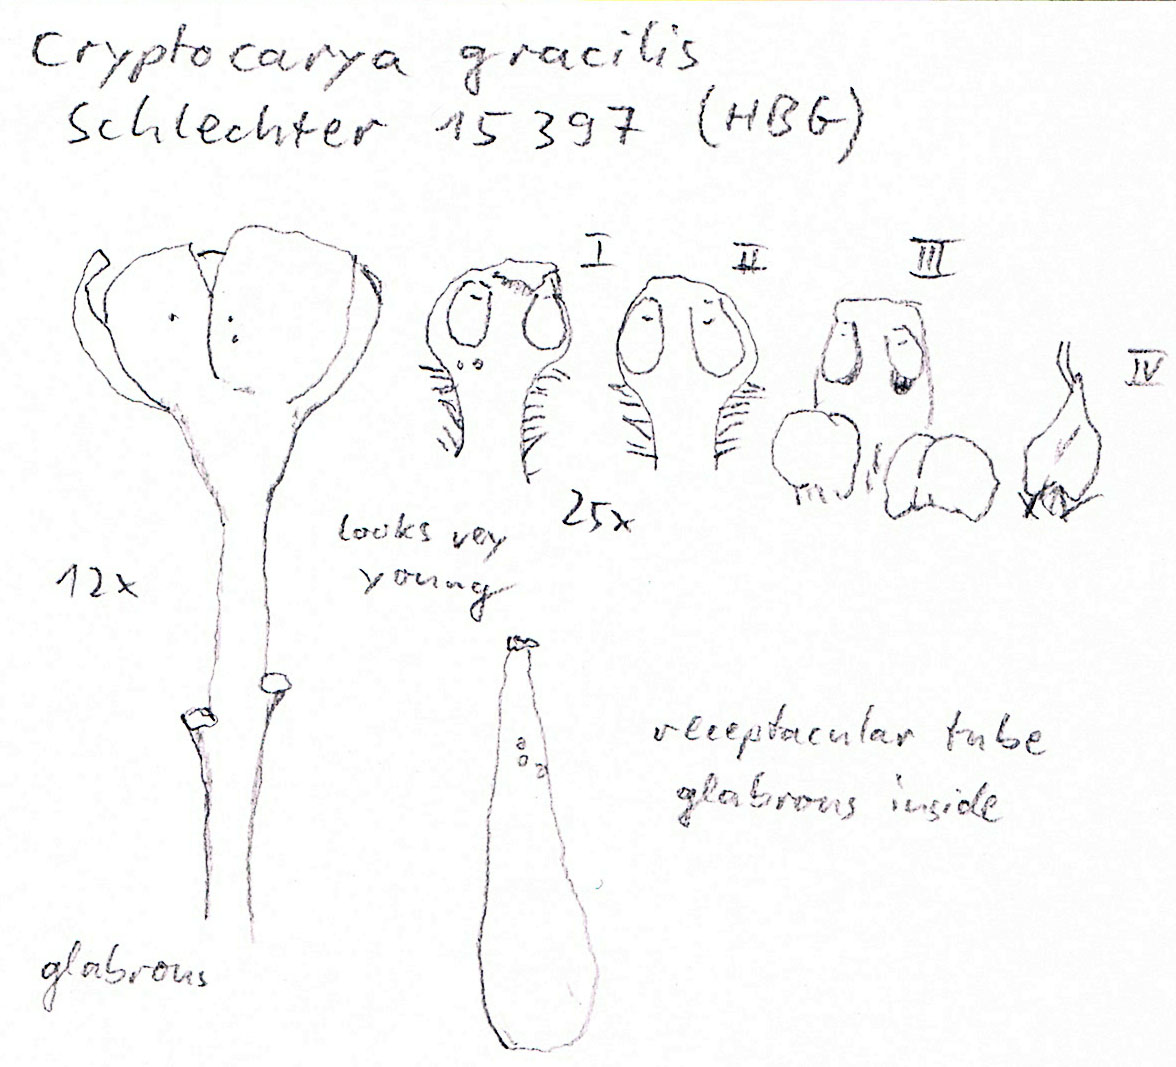 Cryptocarya gracilis
Schlechter 15397 (HBG)
I
II
III
IV
25x
looks vey
young
12x
receptacular tube
glabrous inside
glabrous